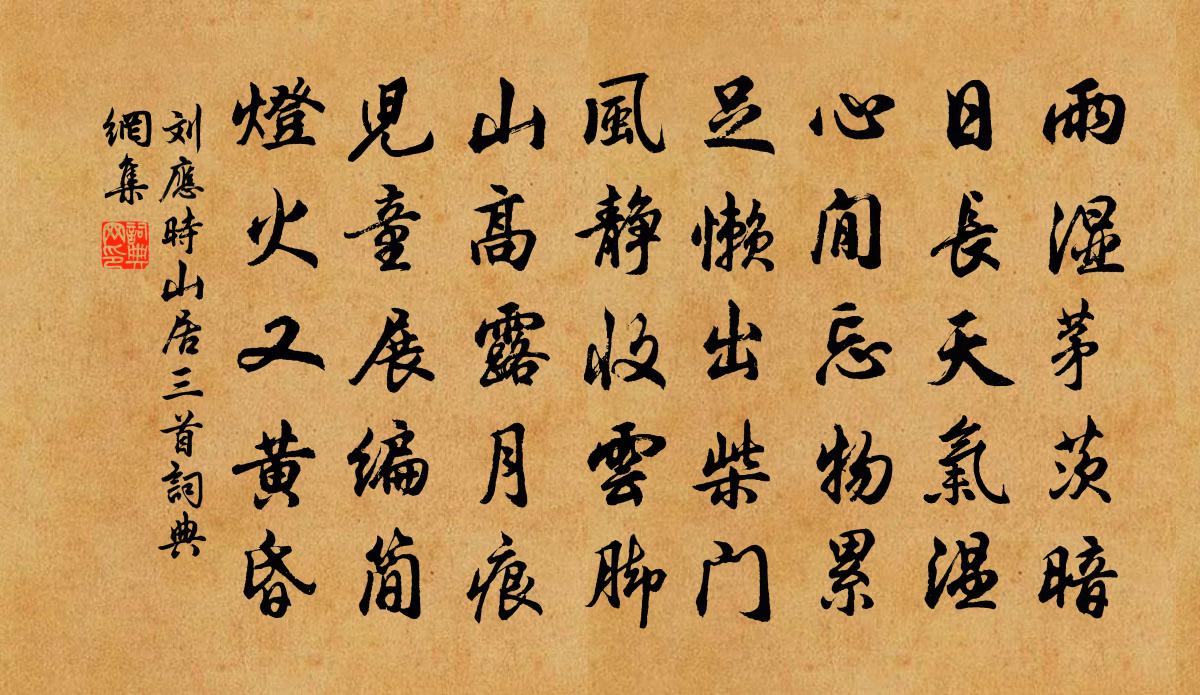 雨湿茅茨暗
日長天氣温
心閒忘物累
足懒出柴门
風静收雲脚
山高露月痕
児童展编简
燈火又黄昏
刘應時山居三首詞典
網集
詞典網印